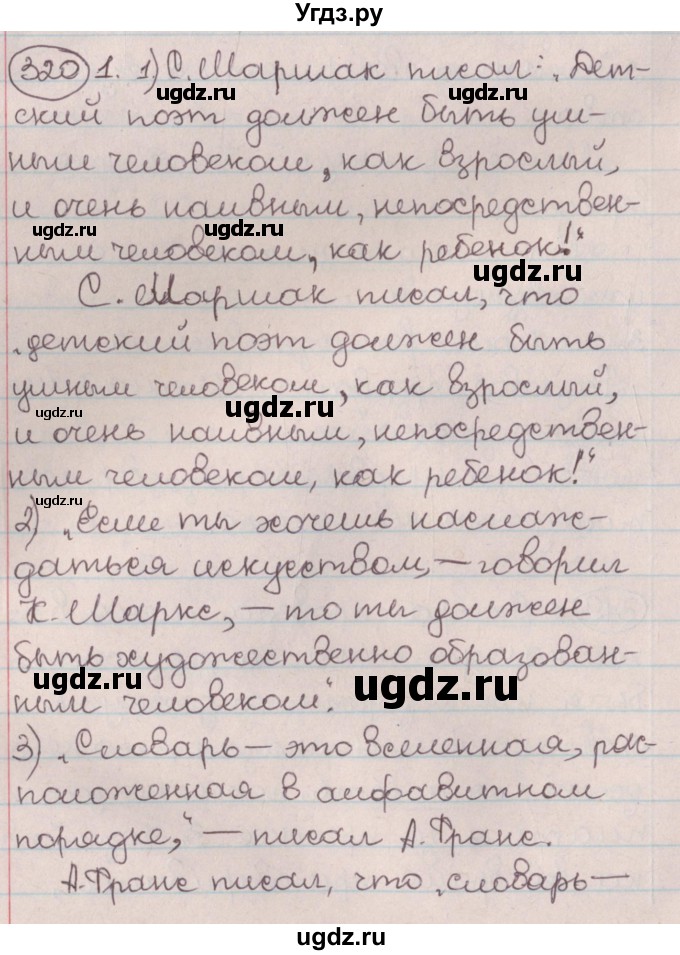 Угдз.ру
320 1. 1) С. Маршак писал: „Дет-
ugdz.ru ugdz.ru
ский поэт должен быть ум-
ным человеком, как взрослый,
и очень наивным, непосредствен-
ugdz.ru ugdz.ru
ным человеком, как ребенок!“
ugdz.ru
С. Маршак писал, что
„детский поэт должен быть
умным человеком, как взрослый,
ugdz.ru ugdz.ru
и очень наивным, непосредствен-
ным человеком, как ребенок!“
ugdz.ru
2) „Если ты хочешь наслаж-
даться искусством, — говорил
К. Маркс, — то ты должен
быть художественно образован-
ugdz.ru ugdz.ru
ным человеком“.
3) „Словарь — это вселенная, рас-
положенная в алфавитном
порядке,“ — писал А. Франс.
А. Франс писал, что „словарь —
ugdz.ru